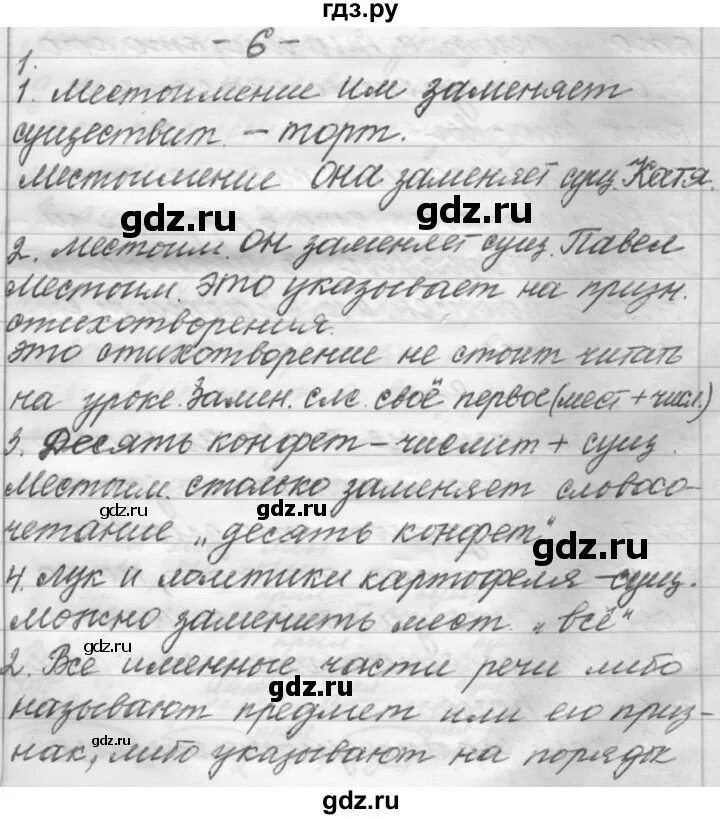 гдз.ру
- 6 -
1.
1. Местоимение им заменяет
существит. – торт.
Местоимение она заменяет сущ. Катя.
gdz.ru
gdz.ru
2. Местоим. Он заменяет сущ. Павел
Местоим. это указывает на призн.
стихотворения.
Это стихотворение не стоит читать
на уроке. Замен. слс. своё первое (мест + числ.)
3. Десять конфет – числит + сущ.
Местоим. столько заменяет словосо-
gdz.ru
gdz.ru
четание „десять конфет“
gdz.ru
4. Лук и ломтики картофеля – сущ.
можно заменить мест. „всё“
gdz.ru
2. Все именные части речи либо
gdz.ru
называют предмет или его приз-
gdz.ru
нак, либо указывают на порядк
gdz.ru